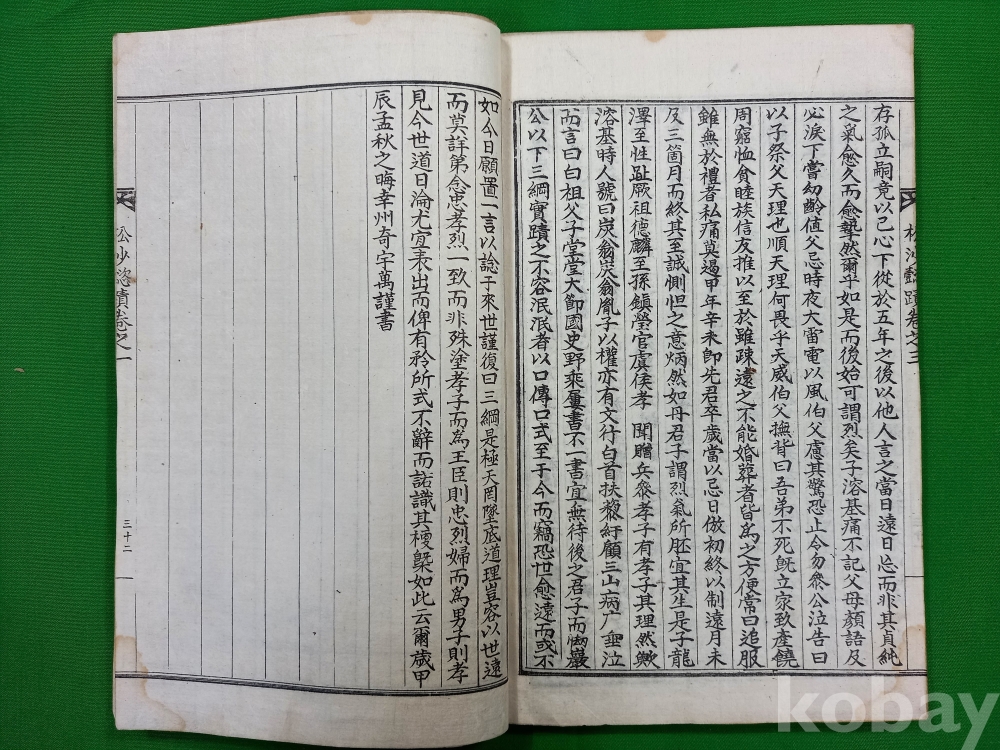 存孤立嗣竟以己心下從於五年之後以他人言之當日遠日忘而非其貞純
之氣愈久而愈摯然爾乎如是而後始可謂烈矣子溶基痛不記父母顔語及
必淚下當幼齡値父忌時夜大雷電以風伯父慮其驚恐止令勿叅公泣告曰
以子祭父天理也順天理何畏乎天威伯父撫背曰吾弟不死旣立家致產饒
周窮恤貧睦族信友推以至於雖疎遠之不能婚葬者皆爲之方便常曰追服
雖無於禮者私痛莫遏甲年辛未卽先君卒歲當以忌日倣初終以制遠月未
及三箇月而終其至誠惻怛之意炳然如丹君子謂烈氣所胚宜其生是子龍
澤至性趾厥祖德麟至孫鎭瑩官虞侯孝 聞贈兵叅孝子有孝子其理然歟
溶基時人號曰炭翁炭翁胤子以權亦有文行白首扶藜紆顧三山病广垂泣
而言曰曰祖父子堂堂大節國史野乘屢書不一書宜無待後之君子而惟巖
公以下三綱實蹟之不容泯泯者以口傳口式至于今而竊恐世愈遠而或不
如今日願置一言以諗于來世謹復曰三綱是極天罔墜底道理豈容以世遠
而莫詳第念忠孝烈一致而非殊塗孝子而爲王臣則忠烈婦而爲男子則孝
見今世道日淪尤宜表出而俾有矜所式不辭而諾識其梗槩如此云爾歲甲
辰孟秋之晦幸州奇宇萬謹書
卷之三
卷之一
三十二
kobay